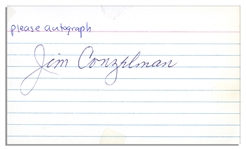 please autograph
Jim Conzelman